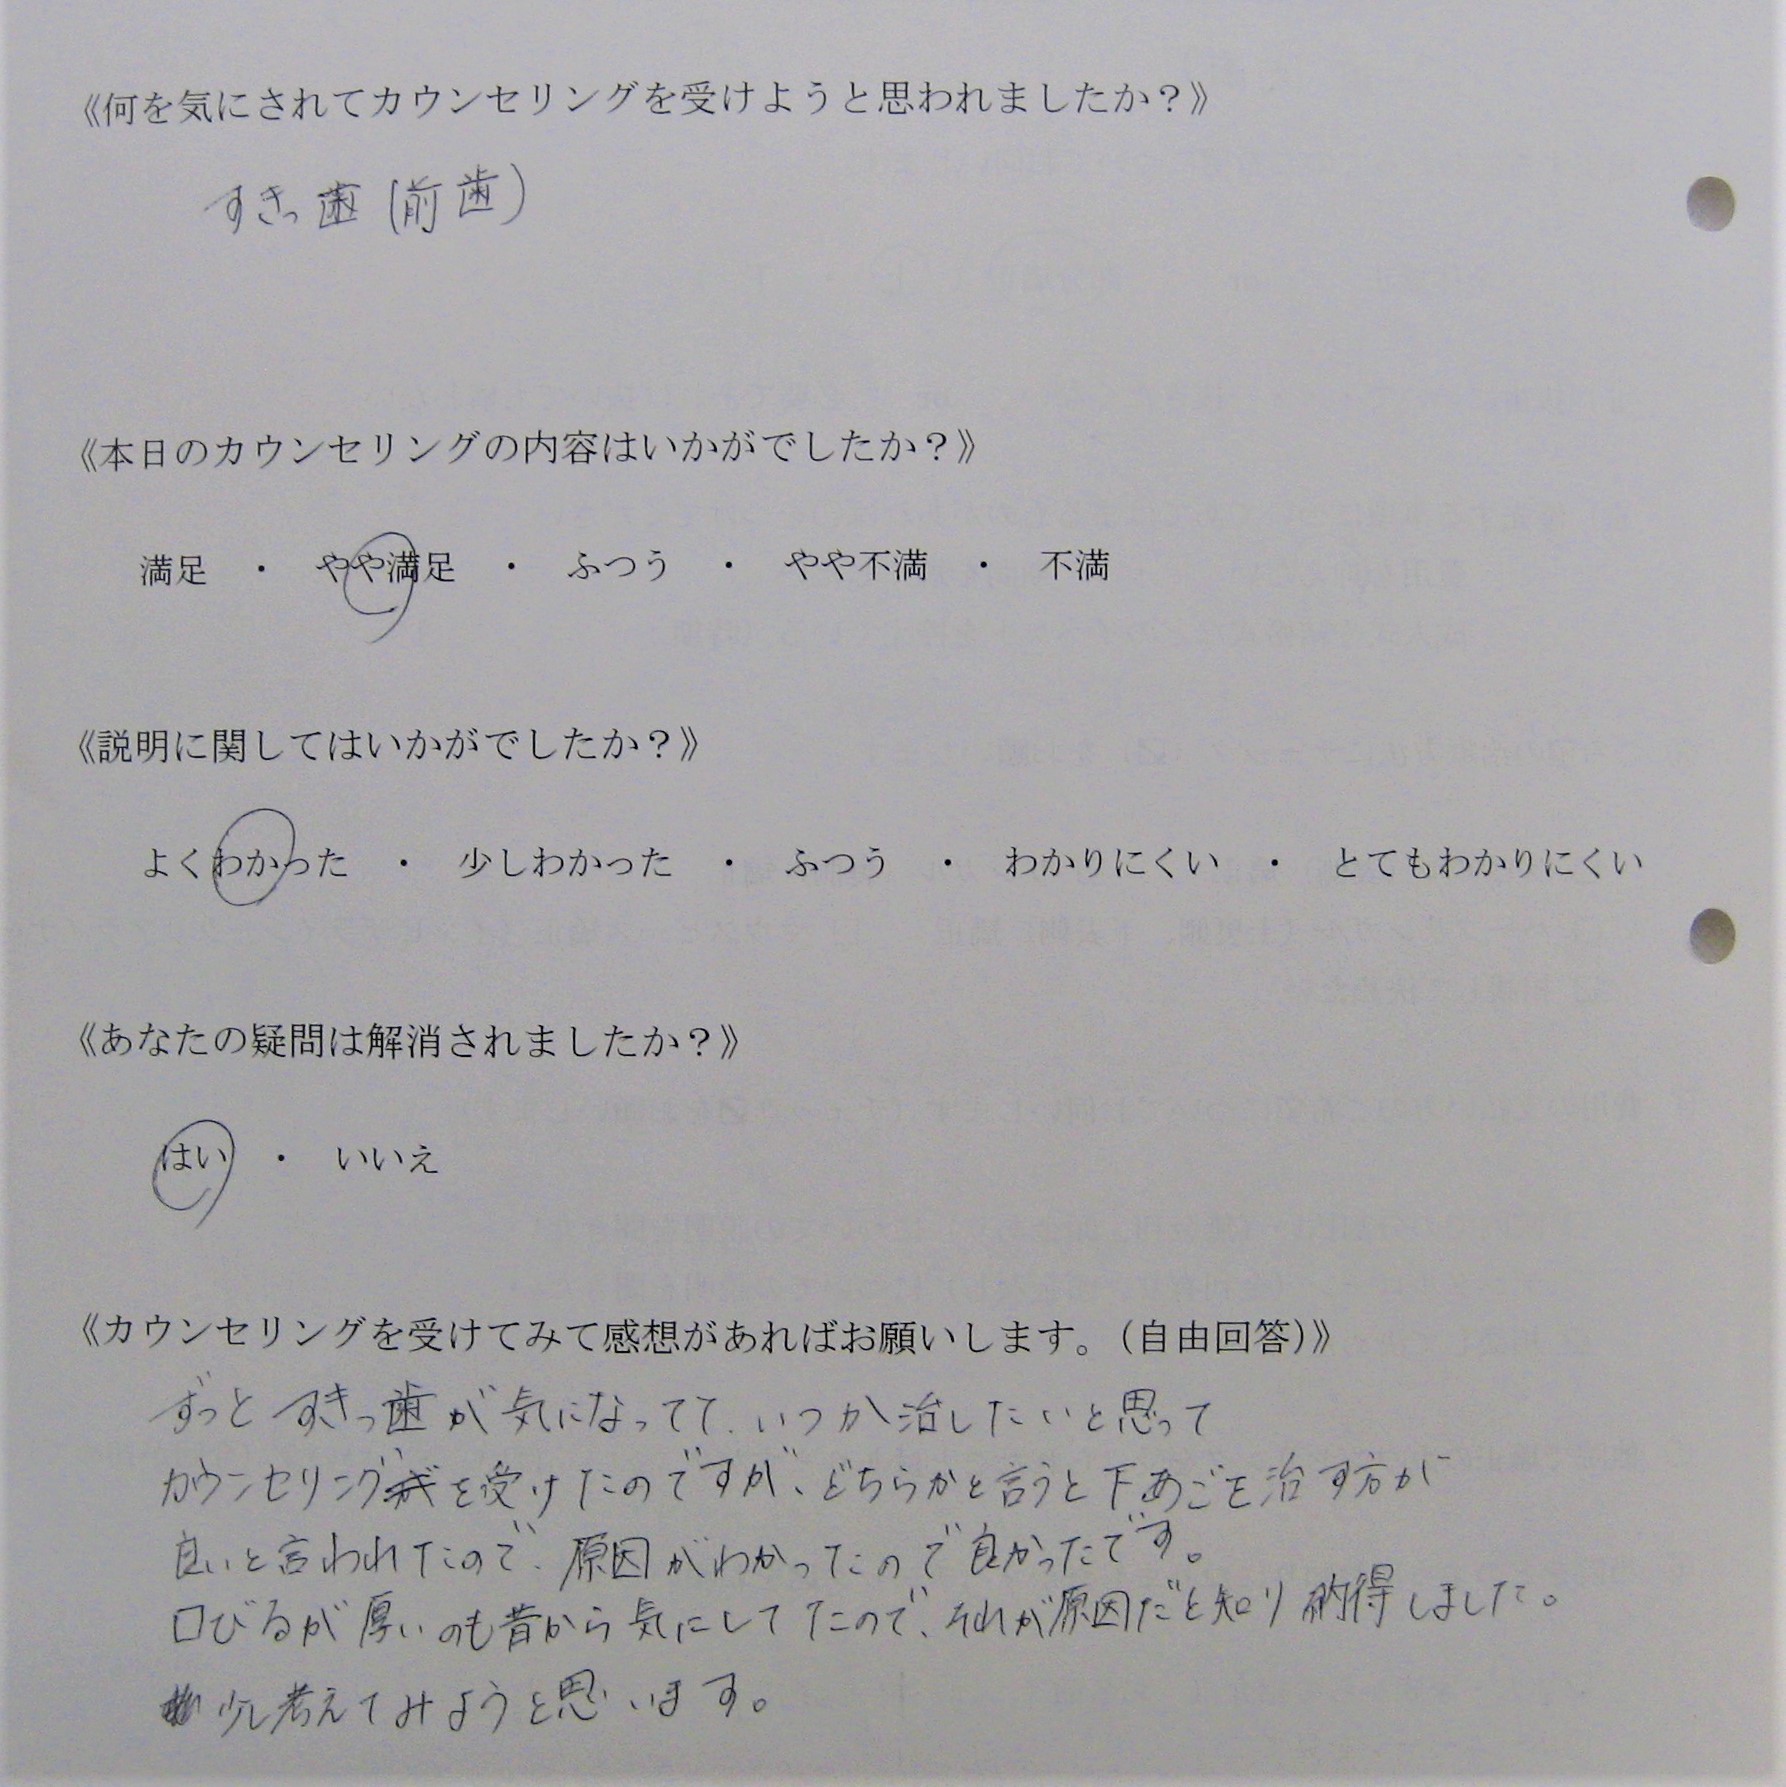 《何を気にされてカウンセリングを受けようと思われましたか？》
すきっ歯(前歯)
《本日のカウンセリングの内容はいかがでしたか？》
満足 ・ やや満足 ・ ふつう ・ やや不満 ・ 不満
《説明に関してはいかがでしたか？》
よくわかった ・ 少しわかった ・ ふつう ・ わかりにくい ・ とてもわかりにくい
《あなたの疑問は解消されましたか？》
はい ・ いいえ
《カウンセリングを受けてみて感想があればお願いします。（自由回答）》
ずっとすきっ歯が気になってて、いつか治したいと思って
カウンセリングを受けたのですが、どちらかと言うと下あごを治す方が
良いと言われたので、原因がわかったので良かったです。
口びるが厚いのも昔から気にしてたので、それが原因だと知り納得しました。
少し考えてみようと思います。